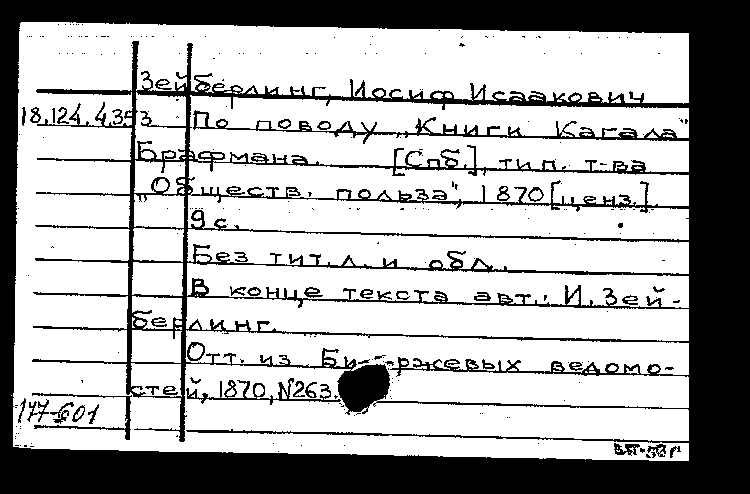 Зейберлинг, Иосиф Исаакович
18.124.4.353 По поводу „Книги Кагала"
Брафмана. [Спб.], тип. т-ва
„Обществ. польза", 1870 [ценз.].
9 с.
Без тит. л. и обл.
В конце текста авт.: И. Зей-
берлинг.
Отт. из Би-ржевых ведомо-
стей, 1870, N263.
177-601